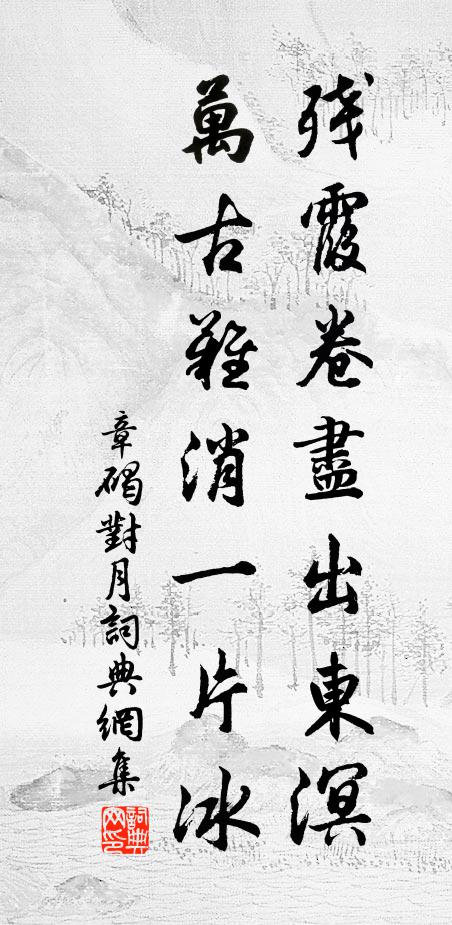 残霞卷盡出東溟
萬古難消一片冰
章碣對月詞典網集
詞典网印